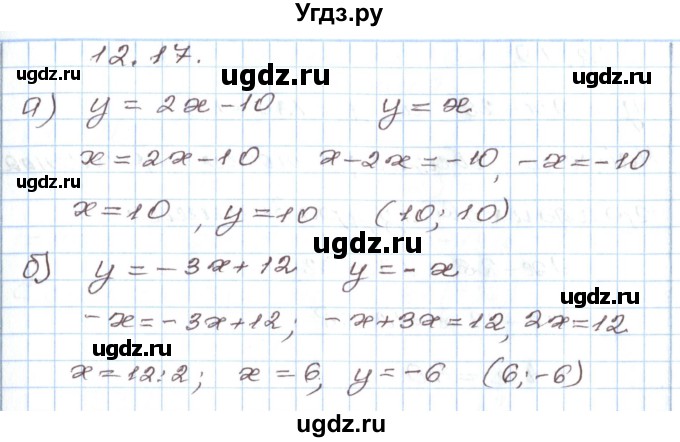 Угдз.ру
12.17.
ugdz.ru ugdz.ru ugdz.ru
а) y = 2x - 10 y = x
x = 2x - 10 x - 2x = -10, -x = -10
ugdz.ru
x = 10, y = 10 (10; 10)
ugdz.ru
б) y = -3x + 12 y = -x
-x = -3x + 12; -x + 3x = 12, 2x = 12
ugdz.ru ugdz.ru
x = 12:2; x = 6, y = -6 (6; -6)
ugdz.ru